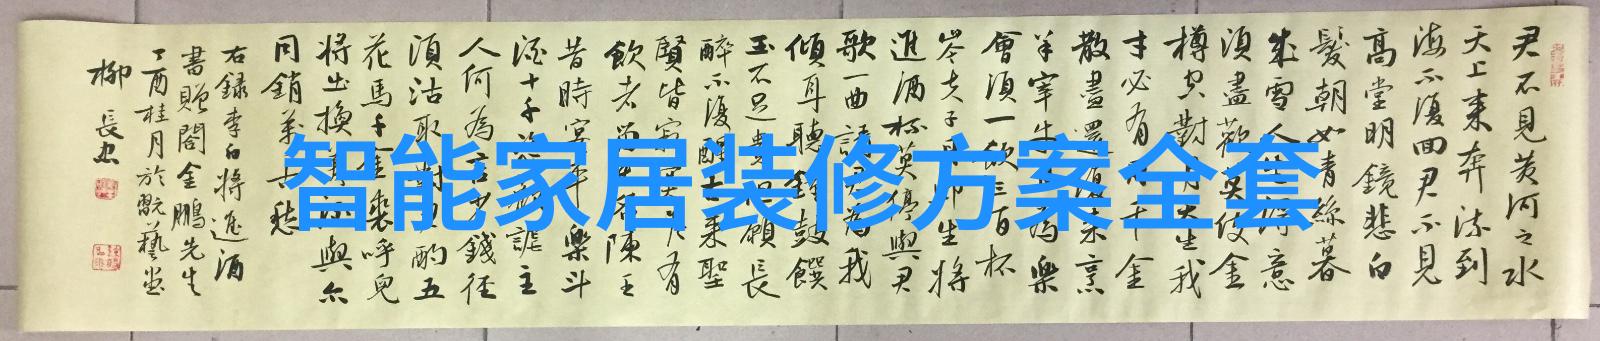 智能家居装修方案全套
君不見黄河之水
天上来奔流到
海不復回君不見
高堂明鏡悲白
髮朝如青絲暮
成雪人生得意
須盡歡莫使金
樽空對月天生我
才必有用千金
散盡還復来烹
羊宰牛且為樂
會須一飲三百杯
岑夫子丹邱生將
進酒杯莫停與君
歌一曲請君為我
傾耳聽鐘鼓饌
玉不足貴但願長
醉不復醒古来聖
賢皆寂寞惟有
飲者留其名陳王
昔時宴平樂斗
酒十千恣歡謔主
人何為言少錢径
須沽取對君酌五
花馬千金裘呼兒
將出換美酒與尔
同銷萬古愁
右録李白將進酒
書贈閻金鵬先生
丁酉桂月於藝堂
柳長忠